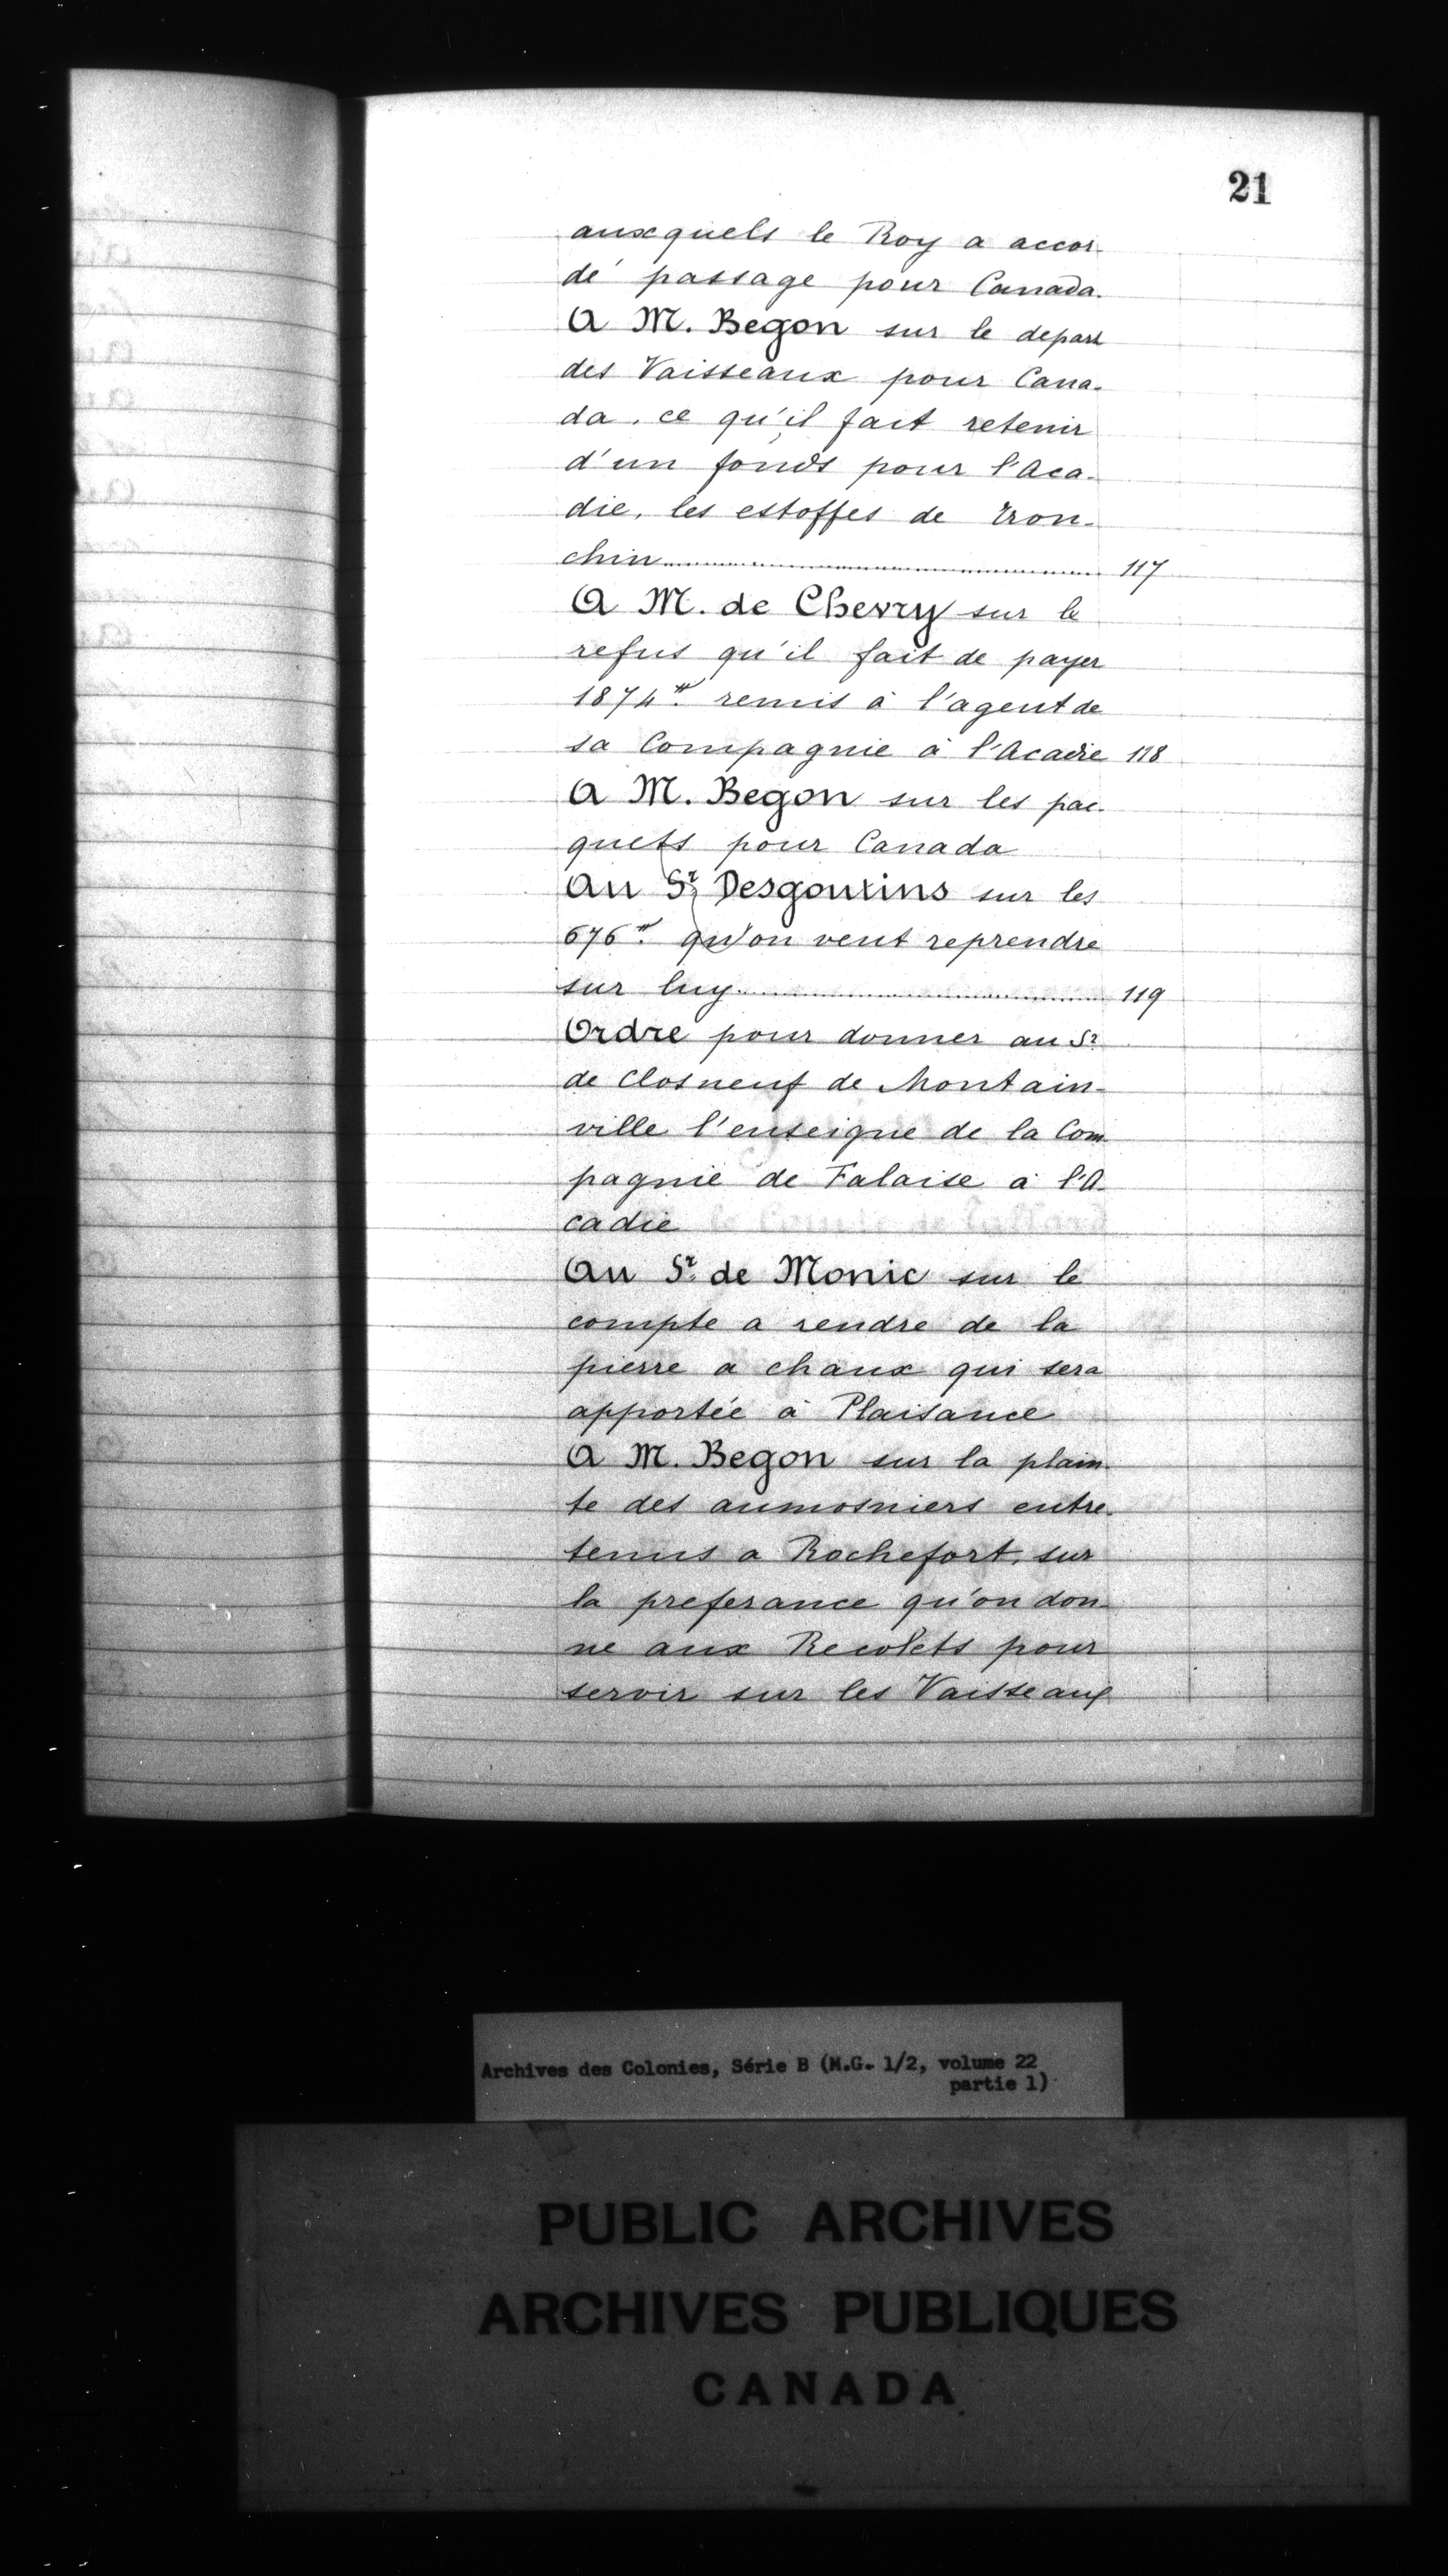 21
auxquels le Roy a accor-
dé passage pour Canada.
A M. Begon sur le depart
des Vaisseaux pour Cana-
da, ce qu'il fait retenir
d'un fonds pour l'Aca-
die, les estoffes de Tron-
chin........................ 117
A M. de Chevry sur le
refus qu'il fait de payer
1874# remis à l'agent de
sa Compagnie à l'Acadie 118
A M. Begon sur les pac-
quets pour Canada
Au Sr Desgoutins sur les
676# qu'on veut reprendre
sur luy........................ 119
Ordre pour donner au Sr
de Closneuf de Montain-
ville l'enseigne de la Com-
pagnie de Falaise à l'A-
cadie
Au Sr de Monic sur le
compte a rendre de la
pierre a chaux qui sera
apportée à Plaisance
A M. Begon sur la plain-
te des aumosniers entre-
tenus a Rochefort, sur
la preferance qu'on don-
ne aux Recolets pour
servir sur les Vaisseaux
Archives des Colonies, Série B (M.G. 1/2, volume 22
partie 1)
PUBLIC ARCHIVES
ARCHIVES PUBLIQUES
CANADA